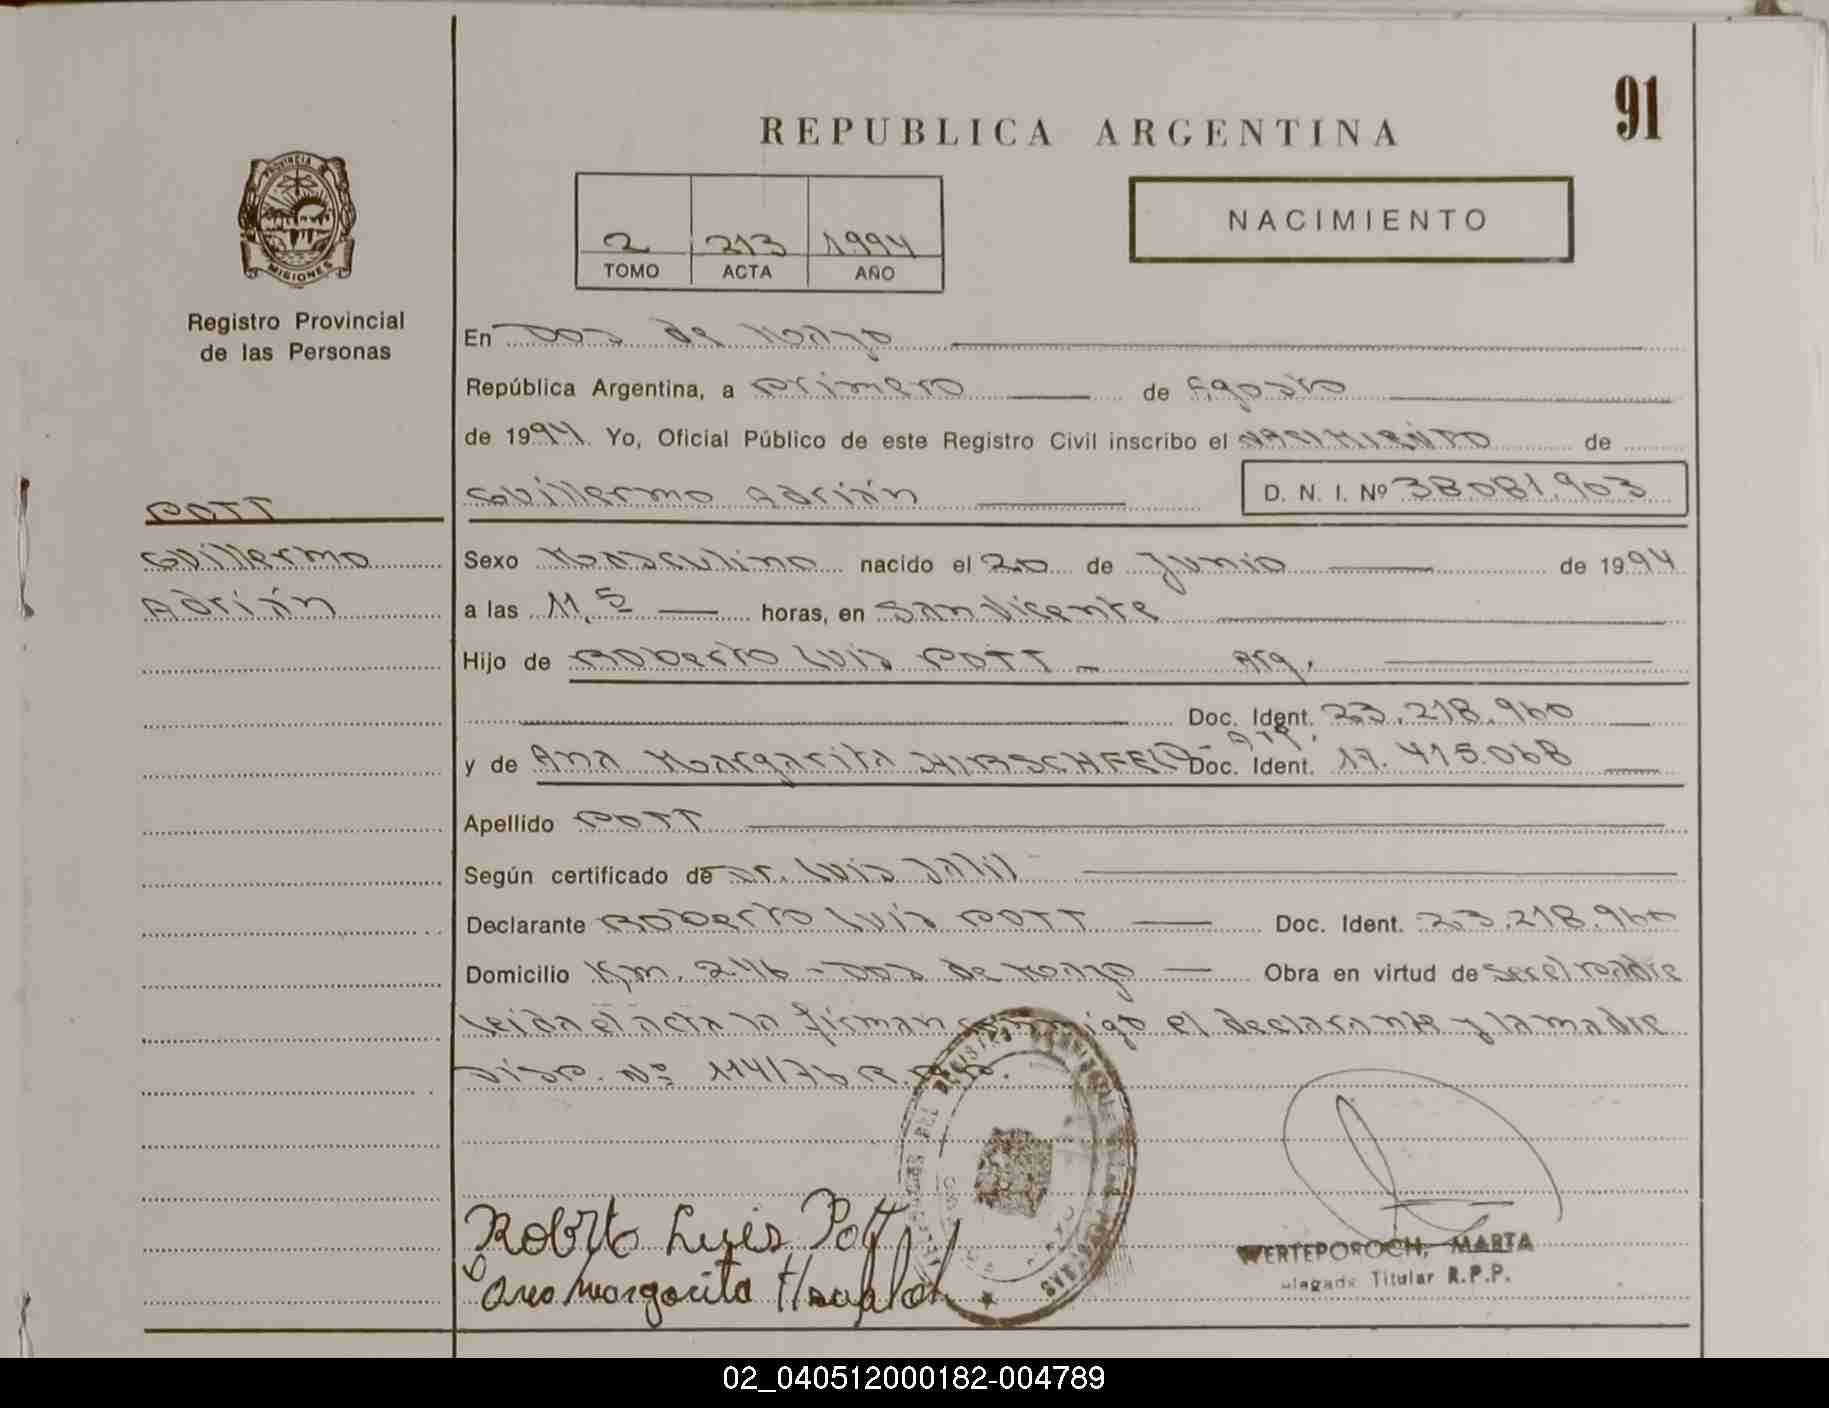 91
REPUBLICA ARGENTINA
PROVINCIA DE
MISIONES
Registro Provincial
de las Personas
2 213 1994
TOMO ACTA AÑO
NACIMIENTO
En Dos de Mayo
República Argentina, a primero de Agosto
de 1994 Yo, Oficial Público de este Registro Civil inscribo el NACIMIENTO de
Guillermo Adrián D. N. I. Nº 38081.903
POTT
Guillermo
Adrián
Sexo Masculino nacido el 20 de Junio de 1994
a las 11,5 horas, en San Vicente
Hijo de Roberto Luis POTT - Arg.
Doc. Ident. 23.218.960
y de Ana Margarita HIRSCHFELD - Arg. Doc. Ident. 17.415.068
Apellido POTT
Según certificado de Dr. Luis Jalil
Declarante Roberto Luis POTT Doc. Ident. 23.218.960
Domicilio Km. 246 - Dos de Mayo Obra en virtud de ser el padre
Leida el acta la firman conmigo el declarante y la madre
Disp. Nº 114/76 R.P.P.
Roberto Luis Pott
Ana Margarita
WERTEPOROCH, MARTA
Titular R.P.P.
02_040512000182-004789